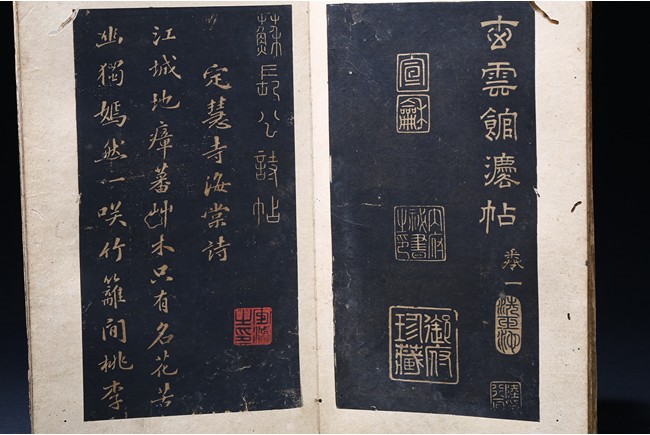 雲館灋帖 卷一
宣龢
內府秘書之印
御府珍藏
蘇長公詩帖
定慧寺海棠詩
江城地瘴蕃艸木只有名花苦
幽獨嫣然一咲竹籬間桃李